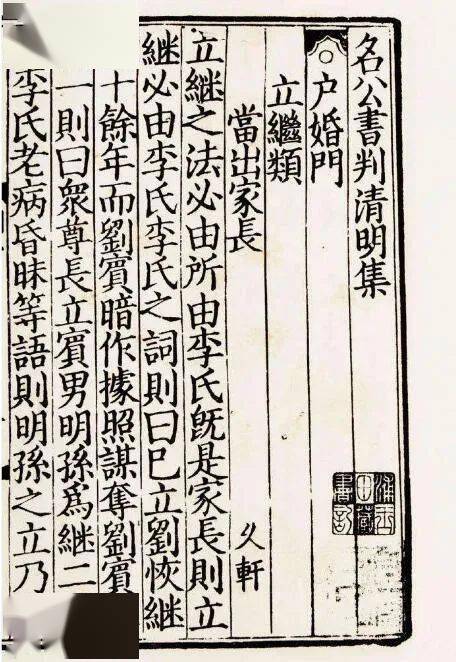 名公書判清明集
户婚門
立繼類
當出家長 久軒
立繼之法必由所由李氏旣是家長則立
繼必由李氏李氏之詞則曰巳立劉恢繼
十餘年而劉賓暗作據照謀奪劉賓
一則曰衆尊長立賓男明孫爲繼二
李氏老病昏昧等語則明孫之立乃
浦玉田藏書記